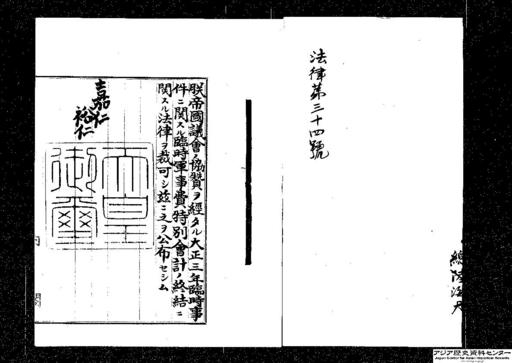 法律第三十四號
朕帝國議會ノ協贊ヲ經タル大正三年臨時事
件ニ關スル臨時軍事費特別會計ノ終結ニ
關スル法律ヲ裁可シ玆ニ之ヲ公布セシム
嘉仁
裕仁
天皇
御璽
内
閣
總
陸
海
大
アジア歴史資料センター
Japan Center for Asian Historical Records